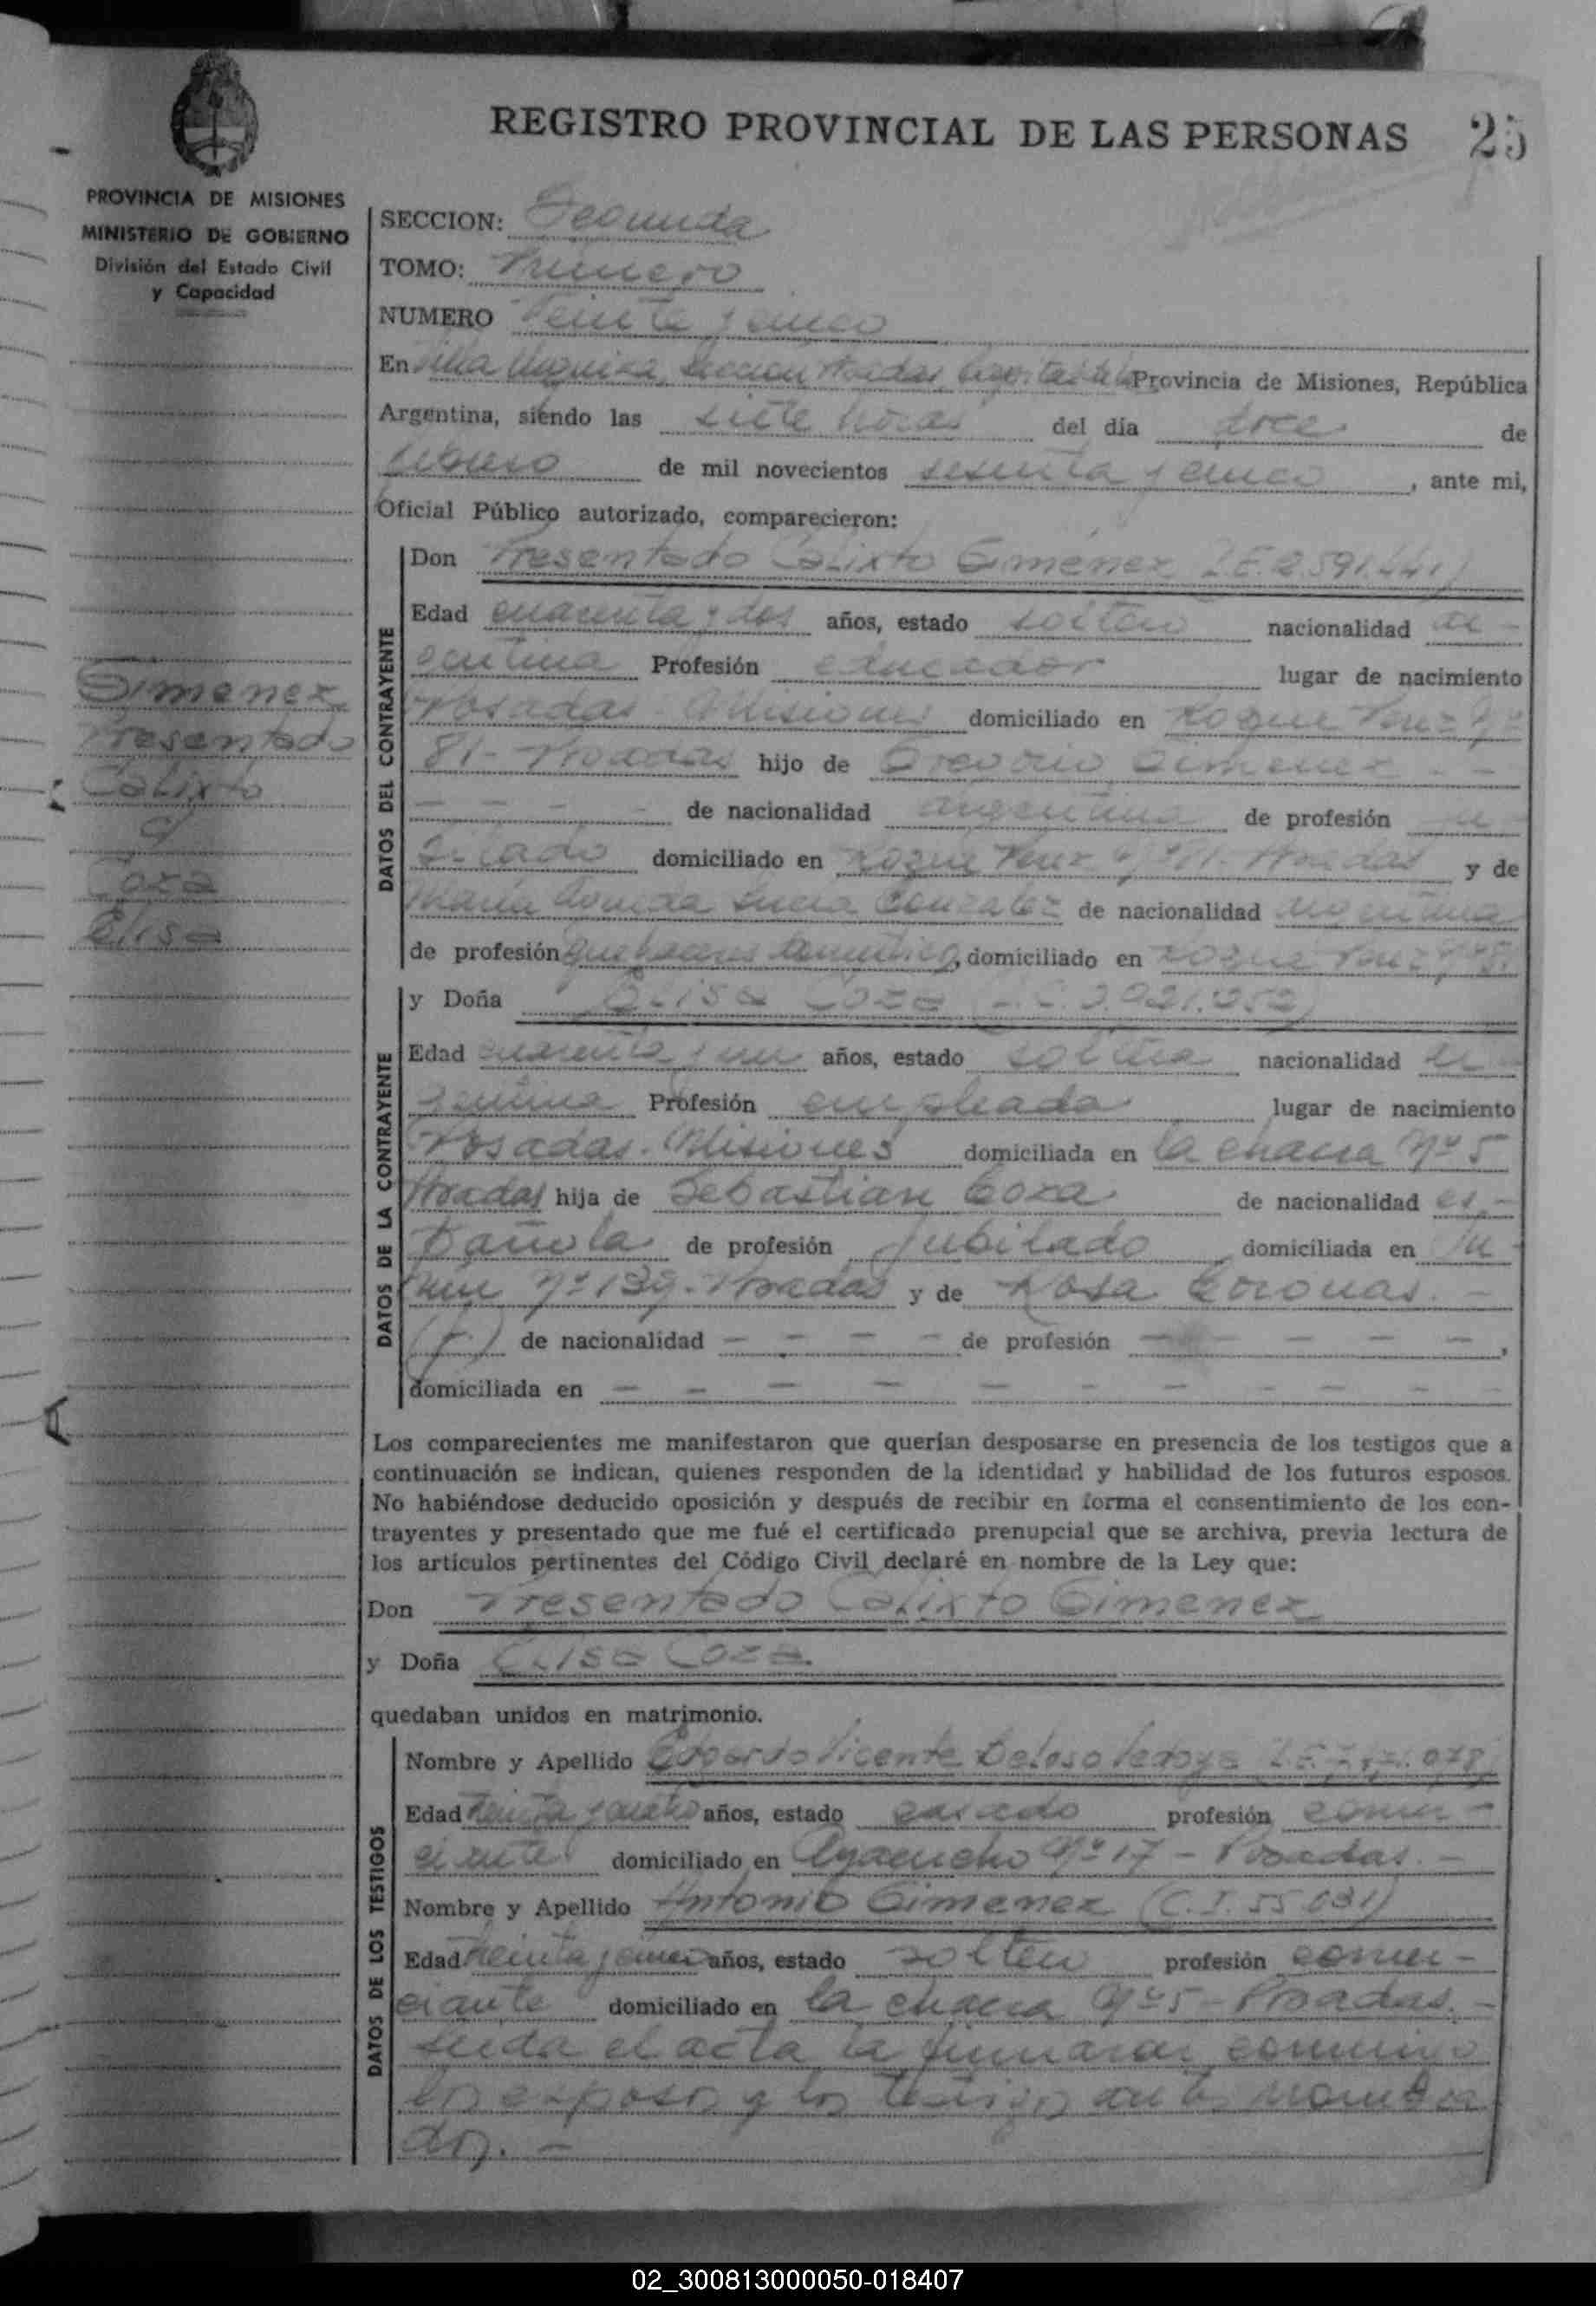 REGISTRO PROVINCIAL DE LAS PERSONAS 25
PROVINCIA DE MISIONES
MINISTERIO DE GOBIERNO
División del Estado Civil
y Capacidad
SECCION: Segunda
TOMO: Primero
NUMERO Veinte y cinco
En Villa Urquiza, Sección Posadas Capital de la Provincia de Misiones, República
Argentina, siendo las siete horas del día doce de
febrero de mil novecientos sesenta y cinco, ante mi,
Oficial Público autorizado, comparecieron:
Gimenez
Presentado
Calixto
c/
Coza
Elisa
DATOS DEL CONTRAYENTE
Don Presentado Calixto Gimenez L.E. 2.591.441)
Edad cuarenta y dos años, estado soltero nacionalidad ar-
gentina Profesión educador lugar de nacimiento
Posadas Misiones domiciliado en Roque Perez Nº
81- Posadas hijo de Gregorio Gimenez - -
- - - - de nacionalidad argentina de profesión
domiciliado en Roque Perez Nº 81- Posadas y de
Maria Gonzalez de nacionalidad argentina
de profesión quehaceres domésticos, domiciliado en Roque Perez Nº 81
DATOS DE LA CONTRAYENTE
y Doña Elisa Coza L.C. 3.021.252)
Edad cuarenta y un años, estado soltera nacionalidad ar-
gentina Profesión empleada lugar de nacimiento
Posadas. Misiones domiciliada en la chacra Nº 5
Posadas hija de Sebastian Coza de nacionalidad es-
pañola de profesión Jubilado domiciliada en Ju-
nin Nº 139- Posadas y de Rosa Coronas. -
(f.) de nacionalidad - - - - de profesión - - - - ,
domiciliada en - - - - - - - - - -
Los comparecientes me manifestaron que querían desposarse en presencia de los testigos que a
continuación se indican, quienes responden de la identidad y habilidad de los futuros esposos.
No habiéndose deducido oposición y después de recibir en forma el consentimiento de los con-
trayentes y presentado que me fué el certificado prenupcial que se archiva, previa lectura de
los artículos pertinentes del Código Civil declaré en nombre de la Ley que:
Don Presentado Calixto Gimenez
y Doña Elisa Coza.
quedaban unidos en matrimonio.
DATOS DE LOS TESTIGOS
Nombre y Apellido Edgardo Vicente Beloso Ledoya
Edad treinta y cuatro años, estado casado profesión comer-
ciante domiciliado en Ayacucho Nº 17 - Posadas. -
Nombre y Apellido Antonio Gimenez (C.I. 55.031)
Edad treinta y cinco años, estado soltero profesión comer-
ciante domiciliado en la chacra Nº 5 - Posadas. -
Leida el acta la firmaron conmigo
los esposos y los testigos antes nombra
dos. -
02_300813000050-018407